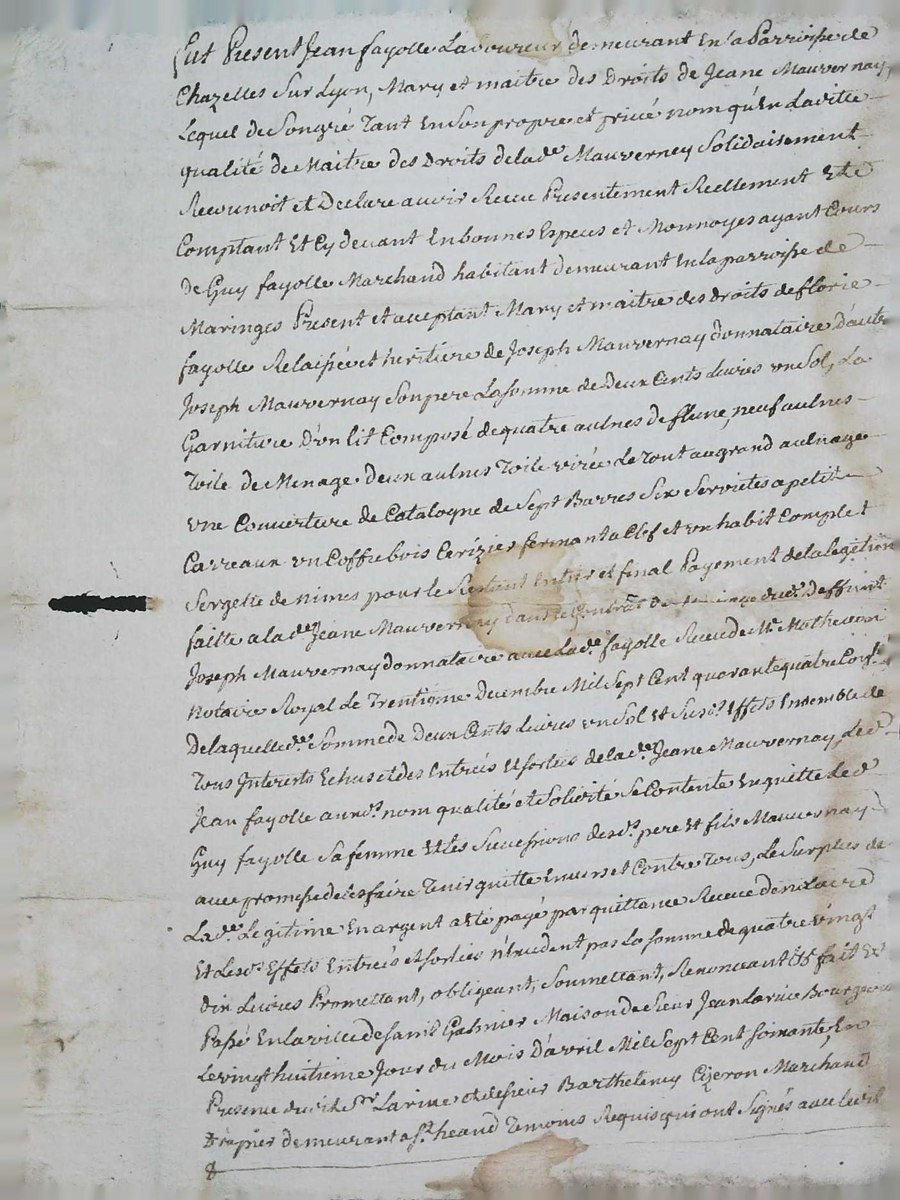 Fut Present Jean fayolle Laboureur demeurant En la Parroisse de
Chazelles Sur Lyon, Mary et maitre des Droits de Jeane Mauvernay,
Lequel de Son gré Tant En Son propre et privé nom qu'En laditte
qualité de Maitre des Droits de lade Mauverney Solidairement
Reconnoit et Declare avoir Receu Presentement Reellement Et
Comptant Et Cy devant En bonnes Especes et Monnoyes ayant Cours
De Guy fayolle Marchand habitant demeurant En la parroisse de
Maringes Present et acceptant Mary et maitre des droits de florie
fayolle Relaissée et heritiere de Joseph Mauvernay donnataire d'autre
Joseph Mauvernay Son pere La somme de Deux Cents Livres un Sol, La
Garniture D'un lit Composé de quatre aulnes de flene, neuf aulnes
Toile de Menage deux aulnes Toile virée Le Tout au grand aulnage
une Couverture de Catalogne de Sept Barres Six Serviettes a petit
Carreaux un Coffre bois Cerizier fermant a Clef et un habit Complet
Sergette de nimes pour le Entier et final Payement de la legation
faitte a la de Jeane Mauvernay dans le Contrat de mariage dud. Deffunt
Joseph Mauvernay donnataire avec Lade fayolle Receu de Me Mathevon
Notaire Royal Le Trentieme Decembre Mil Sept Cent quarante quatre
De laquelle de Somme de Deux Cents Livres un Sol Et Susds Effets Ensemble de
Tous Interests Echus et des Entrées Et sorties de la de Jeane Mauvernay, Le d
Jean fayolle aux ds nom qualité et Solidité Se Contente En quitte Le d
Guy fayolle Sa femme Et les Successions des ds pere Et fils Mauvernay
avec promesse de les faire Tenir quitte Envers et Contre Tous, Le Surplus de
La de Legitime En argent a Eté payé par quittance Receue de
Et Les ds Effets Entrées et sorties n'Excedent pas La somme de quatre vingt
dix Livres Promettant, obligeant, Soumettant, Renonceant &a fait Et
Passé En la ville de Saint Galmier Maison de Sieur Jean Larive Bourgeois
Le vingt huitieme Jour du Mois D'avril Mil Sept Cent Soixante, En
Presence dudit Sr Larive et de Sieur Barthelemy Cizeron Marchand
Drapier demeurant a St heand Temoins Requis qui ont Signés avec